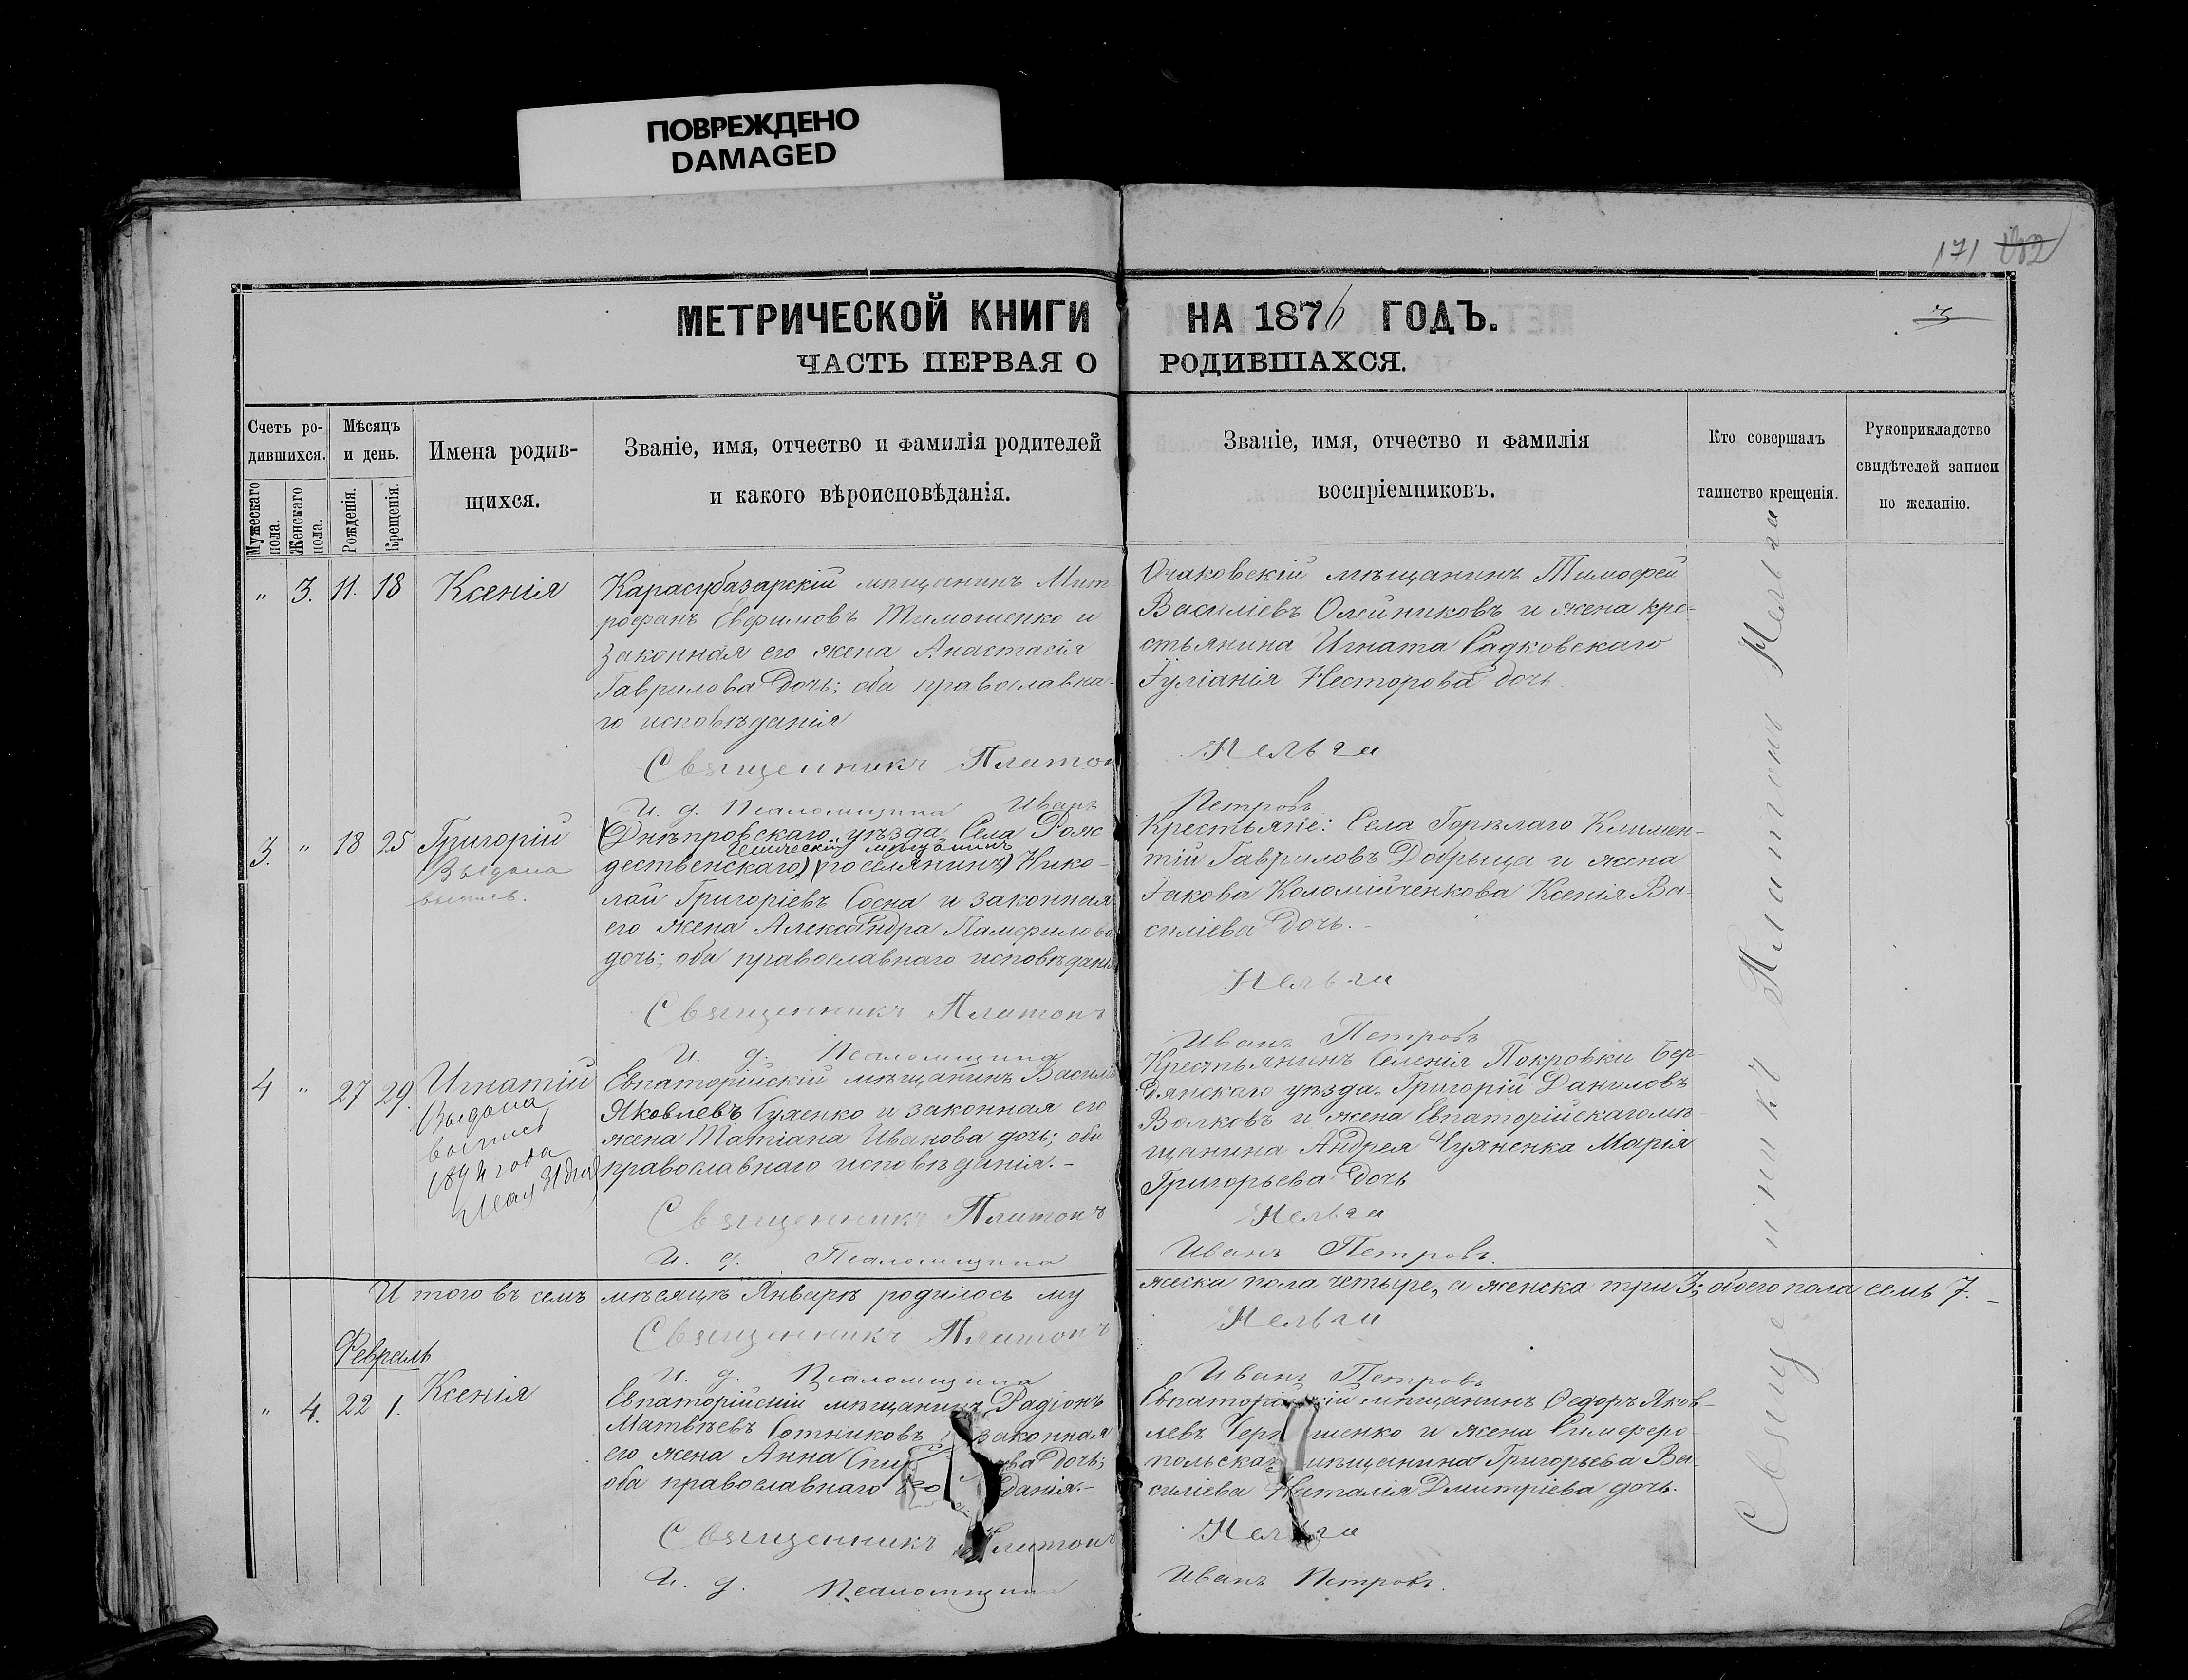 ПОВРЕЖДЕНО
DAMAGED
171 182
МЕТРИЧЕСКОЙ КНИГИ НА 1876 ГОДЪ.
3
ЧАСТЬ ПЕРВАЯ О РОДИВШАХСЯ.
Счетъ ро-
дившихся.
Мужескаго
пола.
Женскаго
пола.
Мѣсяцъ
и день.
Рожденія.
Крещенія.
Имена родив-
щихся.
Званіе, имя, отчество и фамилія родителей
и какого вѣроисповѣданія.
Званіе, имя, отчество и фамилія
воспріемниковъ.
Кто совершалъ
таинство крещенія.
Рукоприкладство
свидѣтелей записи
по желанію.
" 3. 11. 18 Ксенія
Карасубазарскій мѣщанинъ Мит-
рофанъ Евфимовъ Тимошенко и
законная его жена Анастасія
Гаврилова дочь; оба православна-
го исповѣданія
Священникъ Платон
И. д. Псаломщика Иванъ
Очаковскій мѣщанинъ Тимофей
Василіевъ Олейниковъ и жена кре-
стьянина Игната Садковскаго
Іуліанія Несторова дочь
Нельга
Петровъ
3. " 18 25 Григорій
Выдана
выпись.
Днѣпровскаго уѣзда Села Рож
мѣщанинъ
дественскаго) (поселянинъ) Нико-
лай Григоріевъ Сосна и законная
его жена Александра Памфилова
дочь; оба православнаго исповѣдані
Священникъ Платонъ
И. д. Псаломщика
Крестьяне: Села Горѣлаго Климен-
тій Гавриловъ Добрыца и жена
Іакова Коломійченкова Ксенія Ва-
силіева дочь.-
Нельга
Иванъ Петровъ
4 " 27 29. Игнатій
Выдана
выпись
1894 года
Мая 31 дня
Евпаторійскій мѣщанинъ Василі
Яковлевъ Суженко и законная его
жена Татіана Иванова дочь; оба
православнаго исповѣданія.-
Священникъ Платонъ
И. д. Псаломщика
Крестьянинъ Селенія Покровки Бер-
дянскаго уѣзда. Григорій Даниловъ
Волковъ и жена Евпаторійскаго мѣ-
щанина Андрея Чуяненка Марія
Григорьева дочь
Нельга
Иванъ Петровъ.
И того въ семъ мѣсяцѣ Январѣ родилось му
жеска пола четыре, а женска три 3; обоего пола семь 7.-
Священникъ Платонъ
Нельга
И. д. Псаломщика
Иванъ Петровъ
Февраль
" 4. 22 1. Ксенія
Евпаторійскій мѣщанинъ Радіонъ
Матвѣевъ Сотниковъ законная
его жена Анна ва дочь;
оба православнаго данія.-
Священникъ Платонъ
И. д. Псаломщика
Евпаторійскій мѣщанинъ Федоръ Яков-
левъ шенко и жена Симферо-
польска мѣщанина Григорьева Ва-
силіева Наталія Дмитріева дочь.
Нельга
Иванъ Петровъ.
Священникъ Платонъ Нельга